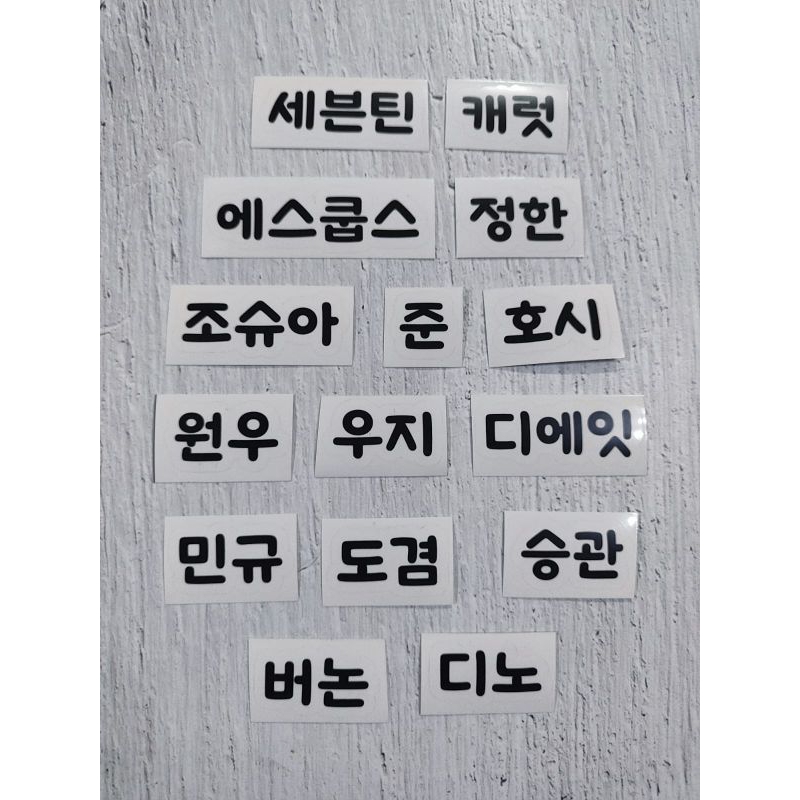 세븐틴 캐럿
에스쿱스 정한
조슈아 준 호시
원우 우지 디에잇
민규 도겸 승관
버논 디노